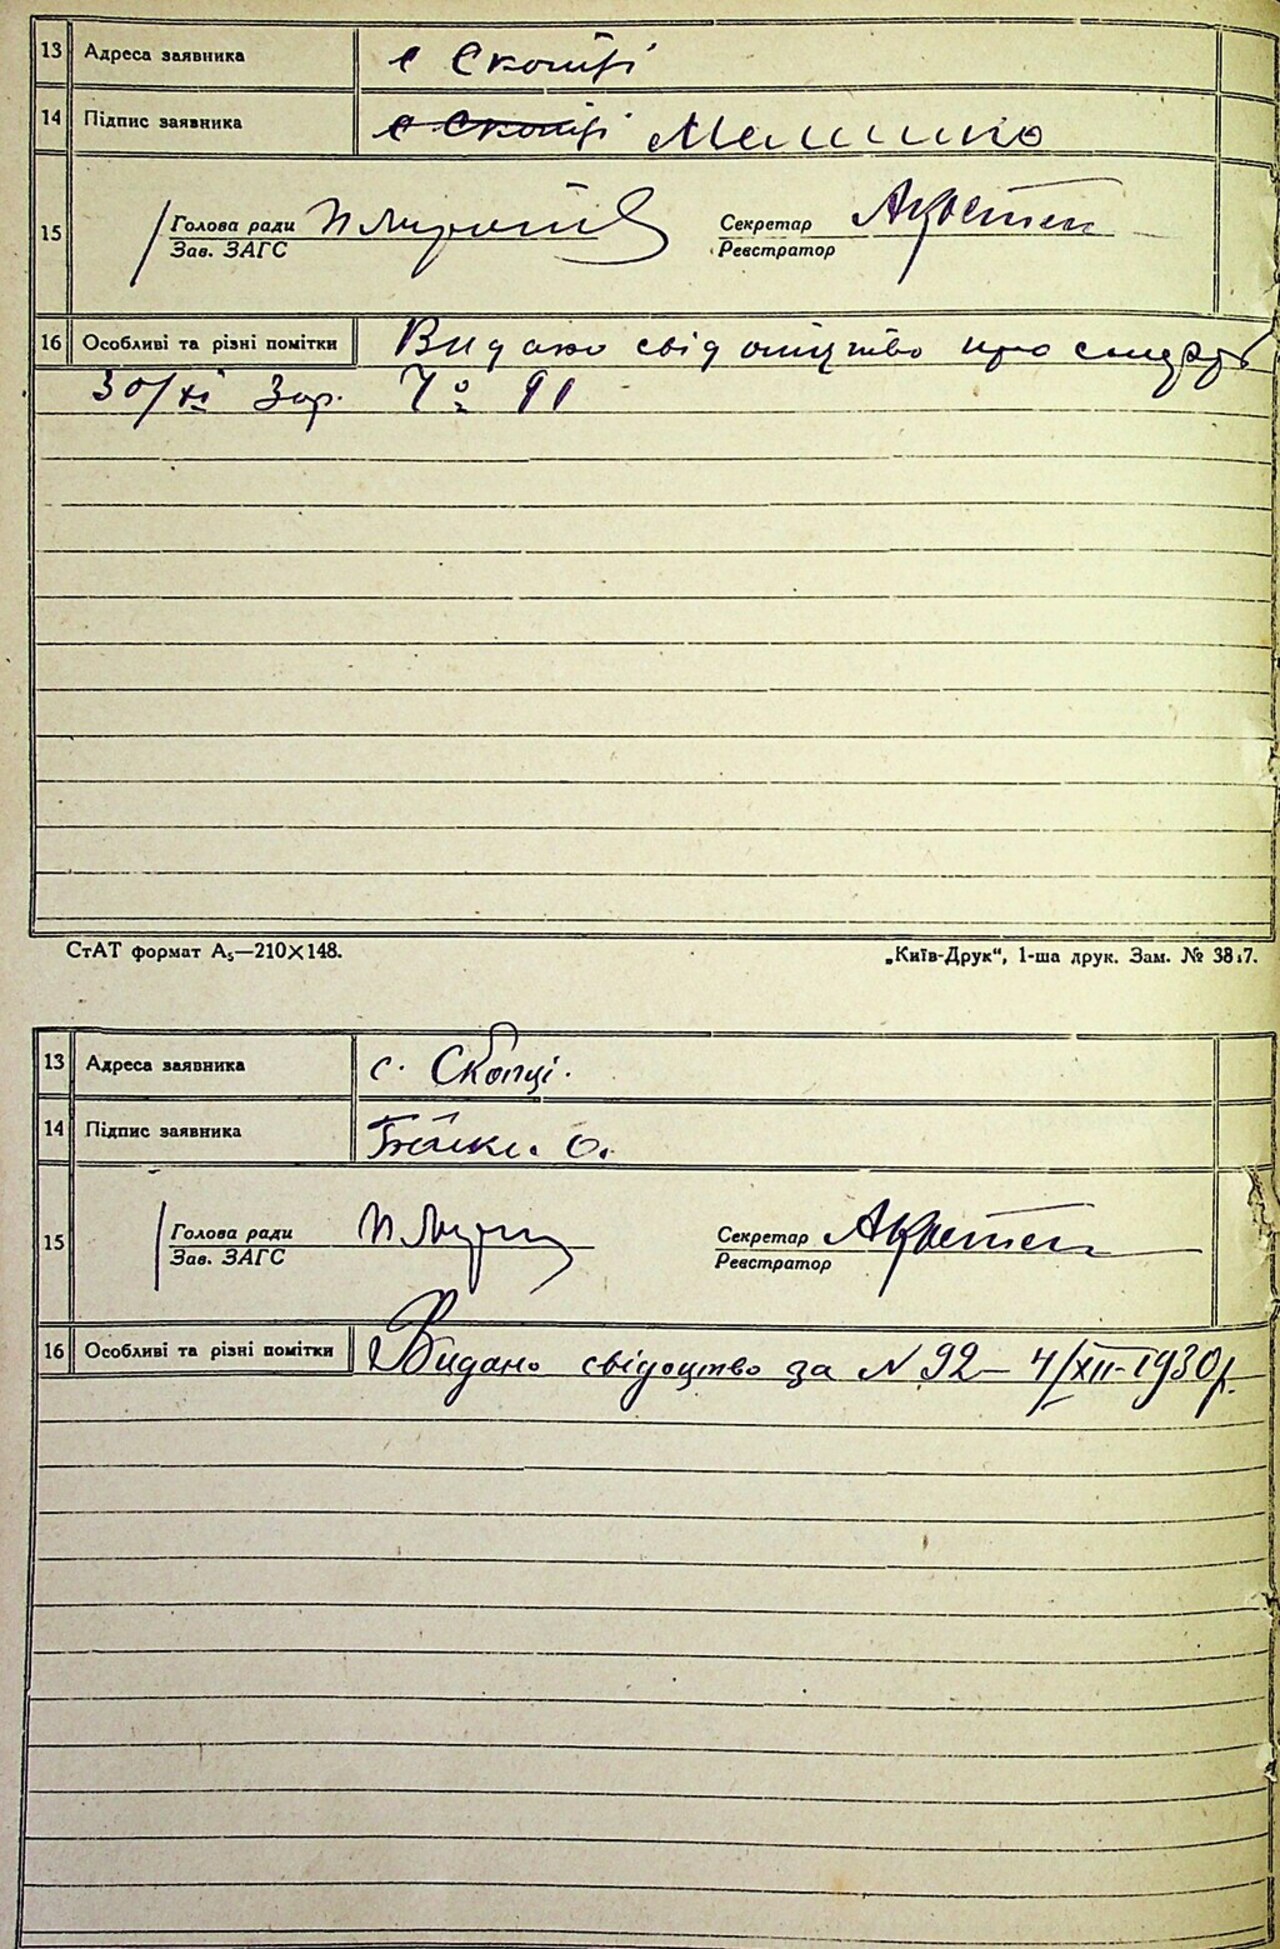 13 Адреса заявника с Скопці
14 Підпис заявника с Скопці
15 Голова ради Секретар
Зав. ЗАГС Реєстратор
16 Особливі та різні помітки Видано свідоцтво про смерть
30/XI 30р. № 91
СтАТ формат А₅—210×148. „Київ-Друк“, 1-ша друк. Зам. №
13 Адреса заявника с. Скопці.
14 Підпис заявника О.
15 Голова ради Секретар
Зав. ЗАГС Реєстратор
16 Особливі та різні помітки Видано свідоцтво за N 92— 4/XII-1930р.